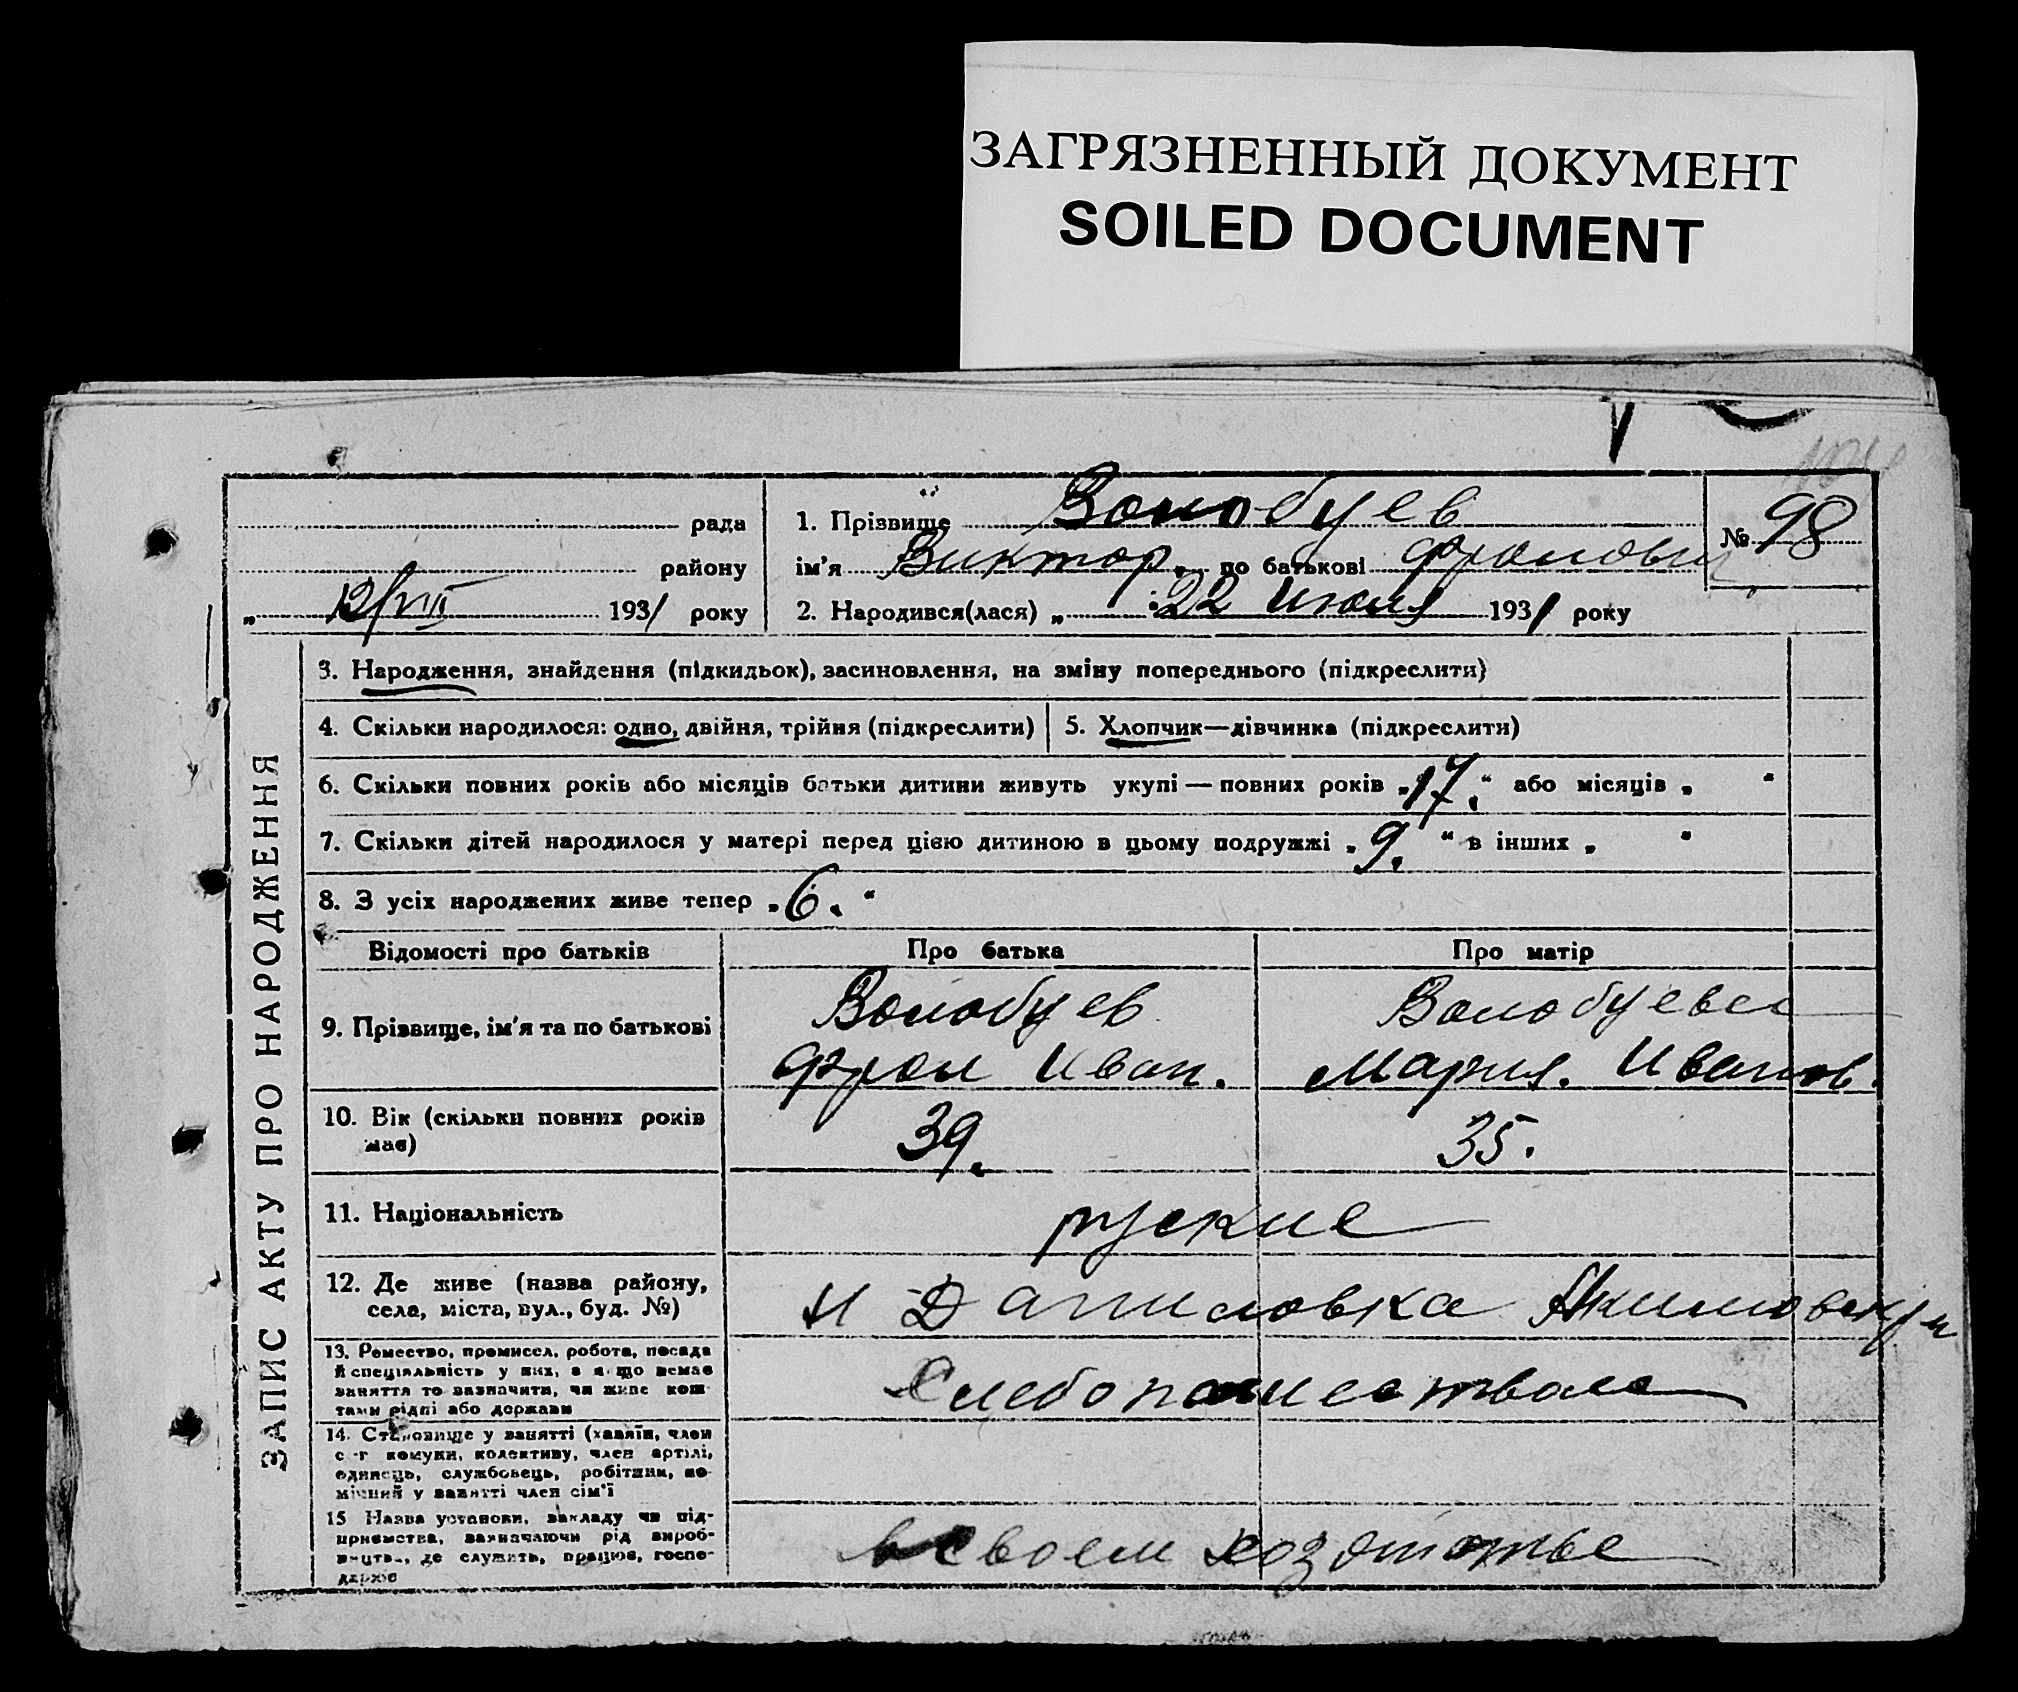 ЗАГРЯЗНЕННЫЙ ДОКУМЕНТ
SOILED DOCUMENT
рада
району
„ 12/VIII 1931 року
1. Прізвище Волобуев
ім'я Виктор. по батькові Фролович
2. Народився(лася) „ 22 Июля 1931 року
№ 98
ЗАПИС АКТУ ПРО НАРОДЖЕННЯ
3. Народження, знайдення (підкидьок), засиновлення, на зміну попереднього (підкреслити)
4. Скільки народилося: одно, двійня, трійня (підкреслити)
5. Хлопчик—дівчинка (підкреслити)
6. Скільки повних років або місяців батьки дитини живуть укупі — повних років „17.“ або місяців „ “
7. Скільки дітей народилося у матері перед цією дитиною в цьому подружжі „9.“ в інших „ “
8. З усіх народжених живе тепер „6.“
Відомості про батьків
Про батька
Про матір
9. Прізвище, ім'я та по батькові
Волобуев
Фрол Иван.
Волобуева
Мария. Иванов.
10. Вік (скільки повних років
має)
39.
35.
11. Національність
руские
12. Де живе (назва району,
села, міста, вул., буд. №)
Н Даниловка
13. Ремество, промисел, робота, посада
й спеціяльність у них, а якщо немає
заняття то зазначити, чи живе кош-
тами рідні або держави
Хлебопашество
14. Становище у занятті (хазяїн, член
с-г комуни, колективу, член артілі,
одинець, службовець, робітник, по-
мічний у занятті член сім'ї
15 Назва установи, закладу чи під-
приємства, зазначаючи рід вироб-
ництв., де служить, працює, госпо-
дарює
в своем